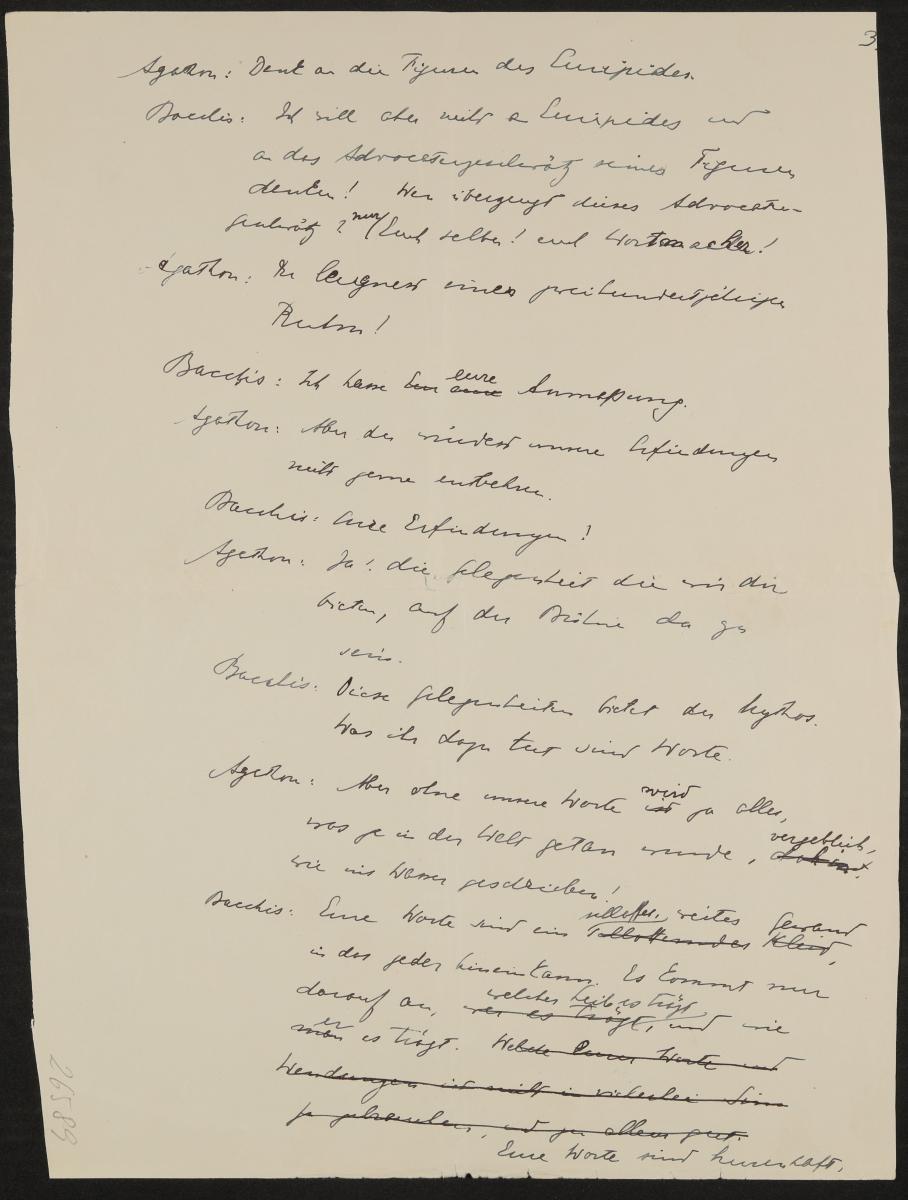 3.
Agathon: Denk an die Figuren des Euripides.
Bacchis: Ich will aber nicht an Euripides und
an das Advocatengeschwätz seiner Figuren
denken! Wen überzeugt dieses Advocaten-
geschwätz? nur Euch selber! euch Wortmacher!
Agathon: Du leugnest einen zweihundertjährigen
Ruhm!
Bacchis: Ich hasse eure Anmaßung.
Agathon: Aber du würdest unsere Erfindungen
nicht gerne entbehren.
Bacchis: Eure Erfindungen!
Agathon: Ja! die Gelegenheit die wir dir
bieten, auf der Bühne da zu
sein.
Bacchis: Diese Gelegenheiten bietet der Mythos.
Was ihr dazu tut sind Worte.
Agathon: Aber ohne unsere Worte ist wird ja alles,
was je in der Welt getan wurde, vergeblich,
wie ins Wasser geschrieben!
Bacchis: Eure Worte sind ein weites Gewand Kleid,
in das jeder hineinkann. Es kommt nur
darauf an, wer es trägt, welcher Leib es trägt und wie
man er es trägt. Welche Eurer Worte und
Wendungen ist nicht in vielerlei Sinn
zu gebrauchen, und zu allem gut.
Eure Worte sind hurenhaft,
26589